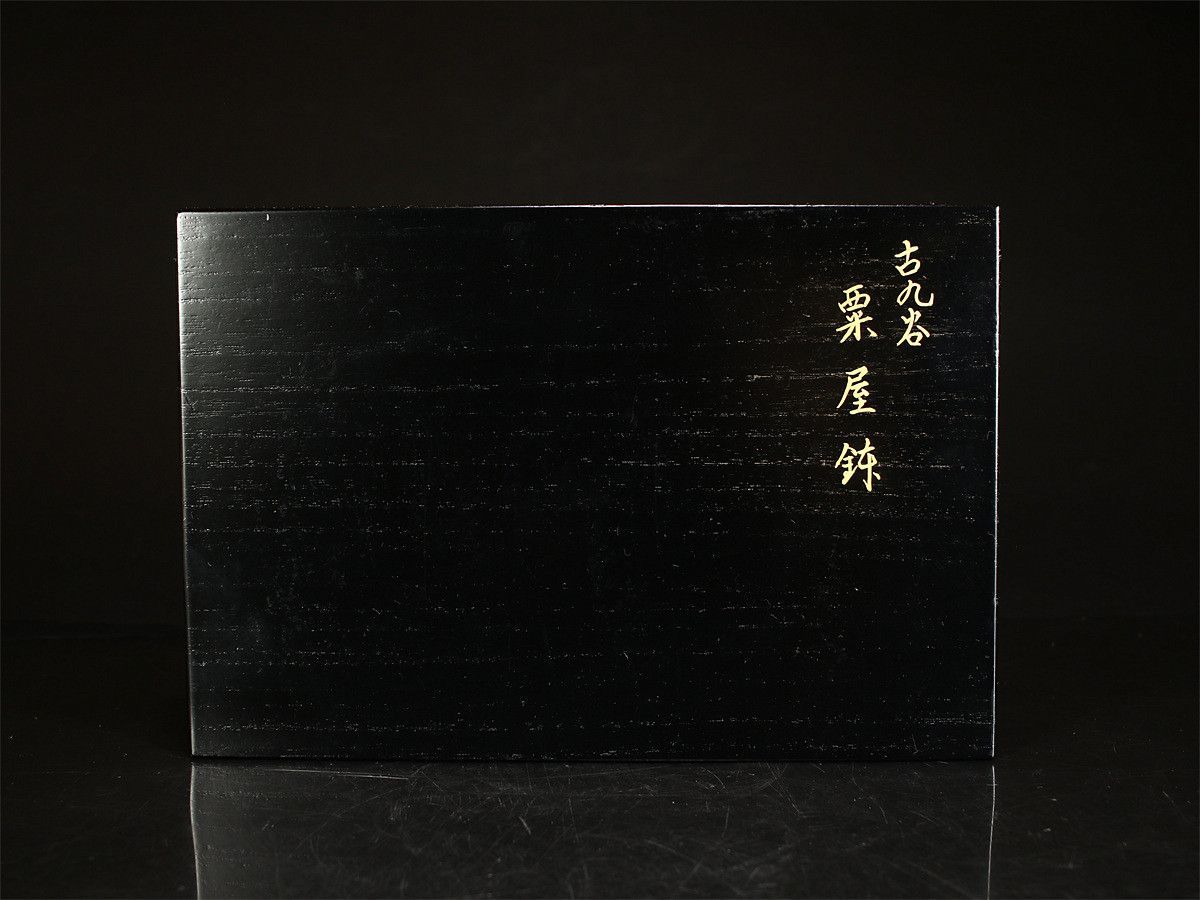 古九谷
粟屋鉢